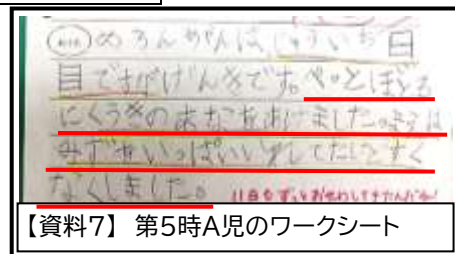 めろんやんはじゅういち日
目でまだげんきです。ぺっとぼとる
にくうきのあなをあけました。まえは
みずをいっぱいいれてたけどすく
なくしました。
11日もずっとおせわしてきたんだね!
【資料7】 第5時A児のワークシート